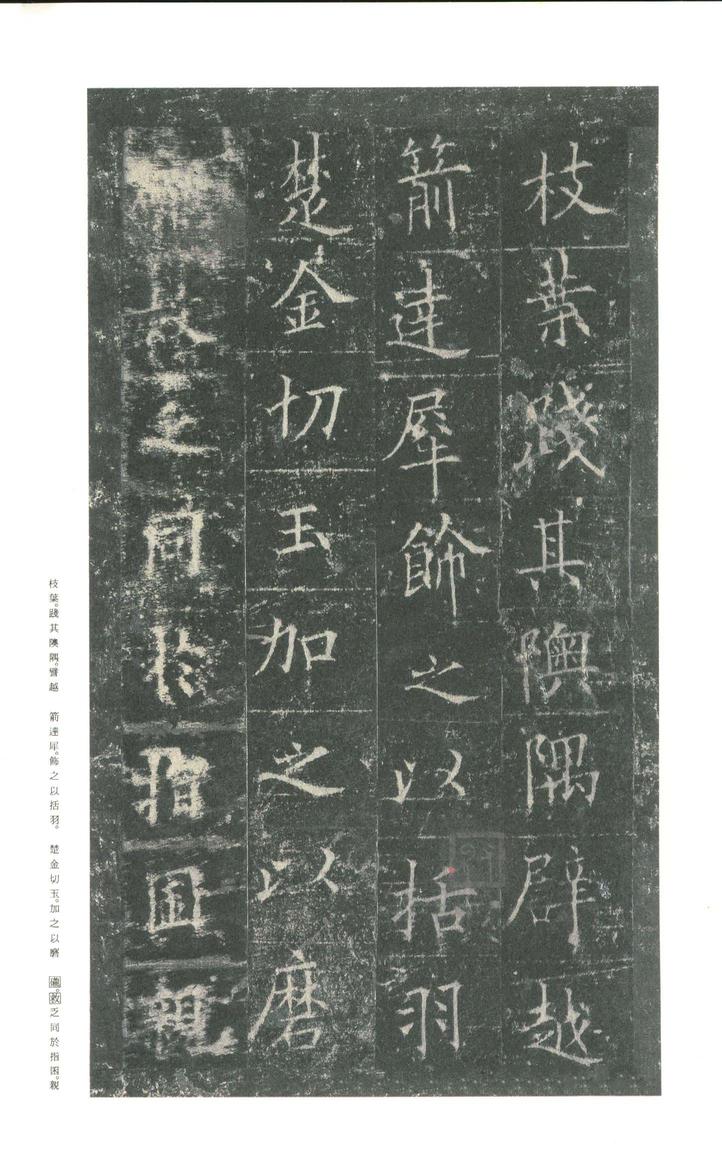 枝葉踐其隩隅辟越
箭達犀飾之以括羽
楚金切玉加之以磨
救乏同於指囷親
枝葉。踐其隩隅。譬越　箭達犀。飾之以括羽。　楚金切玉。加之以磨　救乏同於指囷。親